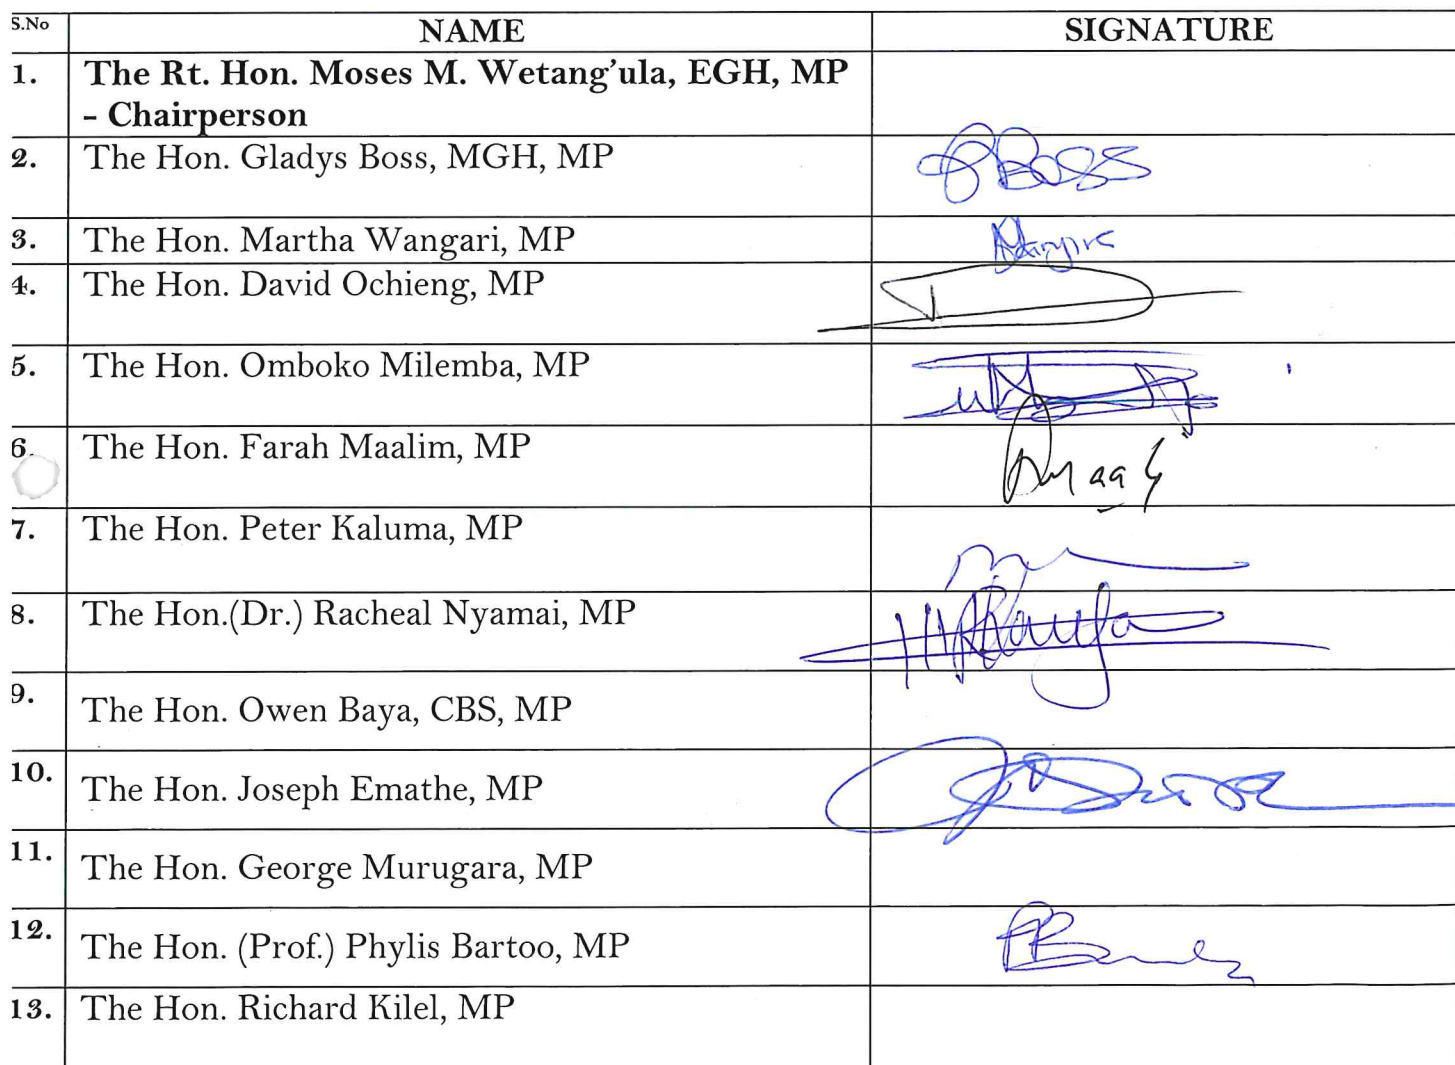 S.No NAME SIGNATURE
1. The Rt. Hon. Moses M. Wetang’ula, EGH, MP
– Chairperson
2. The Hon. Gladys Boss, MGH, MP Boss
3. The Hon. Martha Wangari, MP
4. The Hon. David Ochieng, MP
5. The Hon. Omboko Milemba, MP
6. The Hon. Farah Maalim, MP
7. The Hon. Peter Kaluma, MP
8. The Hon.(Dr.) Racheal Nyamai, MP
9. The Hon. Owen Baya, CBS, MP
10. The Hon. Joseph Emathe, MP
11. The Hon. George Murugara, MP
12. The Hon. (Prof.) Phylis Bartoo, MP
13. The Hon. Richard Kilel, MP